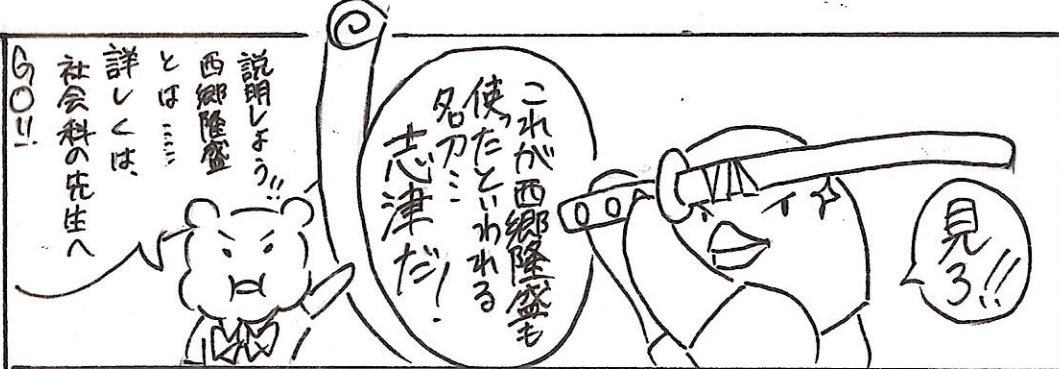 見
ろ!!
これが西郷隆盛も
使ったといわれる
名刀…
志津だ!
説明しよう!!
西郷隆盛
とは……
詳しくは、
社会科の先生へ
GO!!